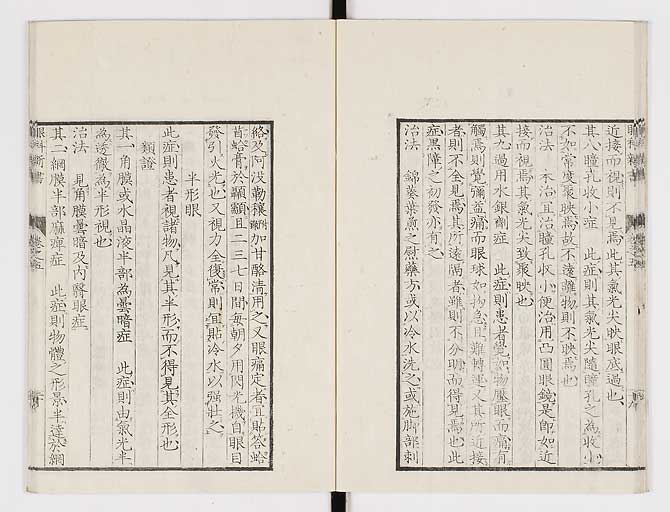 近接而視則不見焉此其氣光尖映眼底過也
其八瞳孔收小症　此症則其氣光尖隨瞳孔之為收小
不如常度聚映焉故不遠離物則不映焉也
治法　本治宜治瞳孔收小便治用凸圓眼鏡是卽如近
接而視焉其氣光尖致聚映也
其九過用水銀劑症　此症則患者覺如物壓眼而痛有
觸焉則覺彌益痛而眼球如拘急且難轉運又其所近接
者則不全見焉其所遠隔者雖則不分明而得見焉也此
症黑障之初發亦有之
治法　錦葵葉煎之慰藥方或以冷水洗之或施脚部刺
絡及阿没勒穰加甘酪清用之又眼痛定者宜貼答蛤
首蛤膏於顳顬且二三七日間每朝夕用閃光機自眼目
發引火光也又視力全復常則宜貼冷水以强壯之
半形眼
此症則患者視諸物凡見其半形而不得見其全形也
類證
其一角膜或水晶液半部為曇暗症　此症則由氣光半
為透徹為半形視也
治法　見角膜曇暗及內翳眼症
其二網膜半部痲痺症　此症則物體之形影半達於網
眼科新書
卷之五